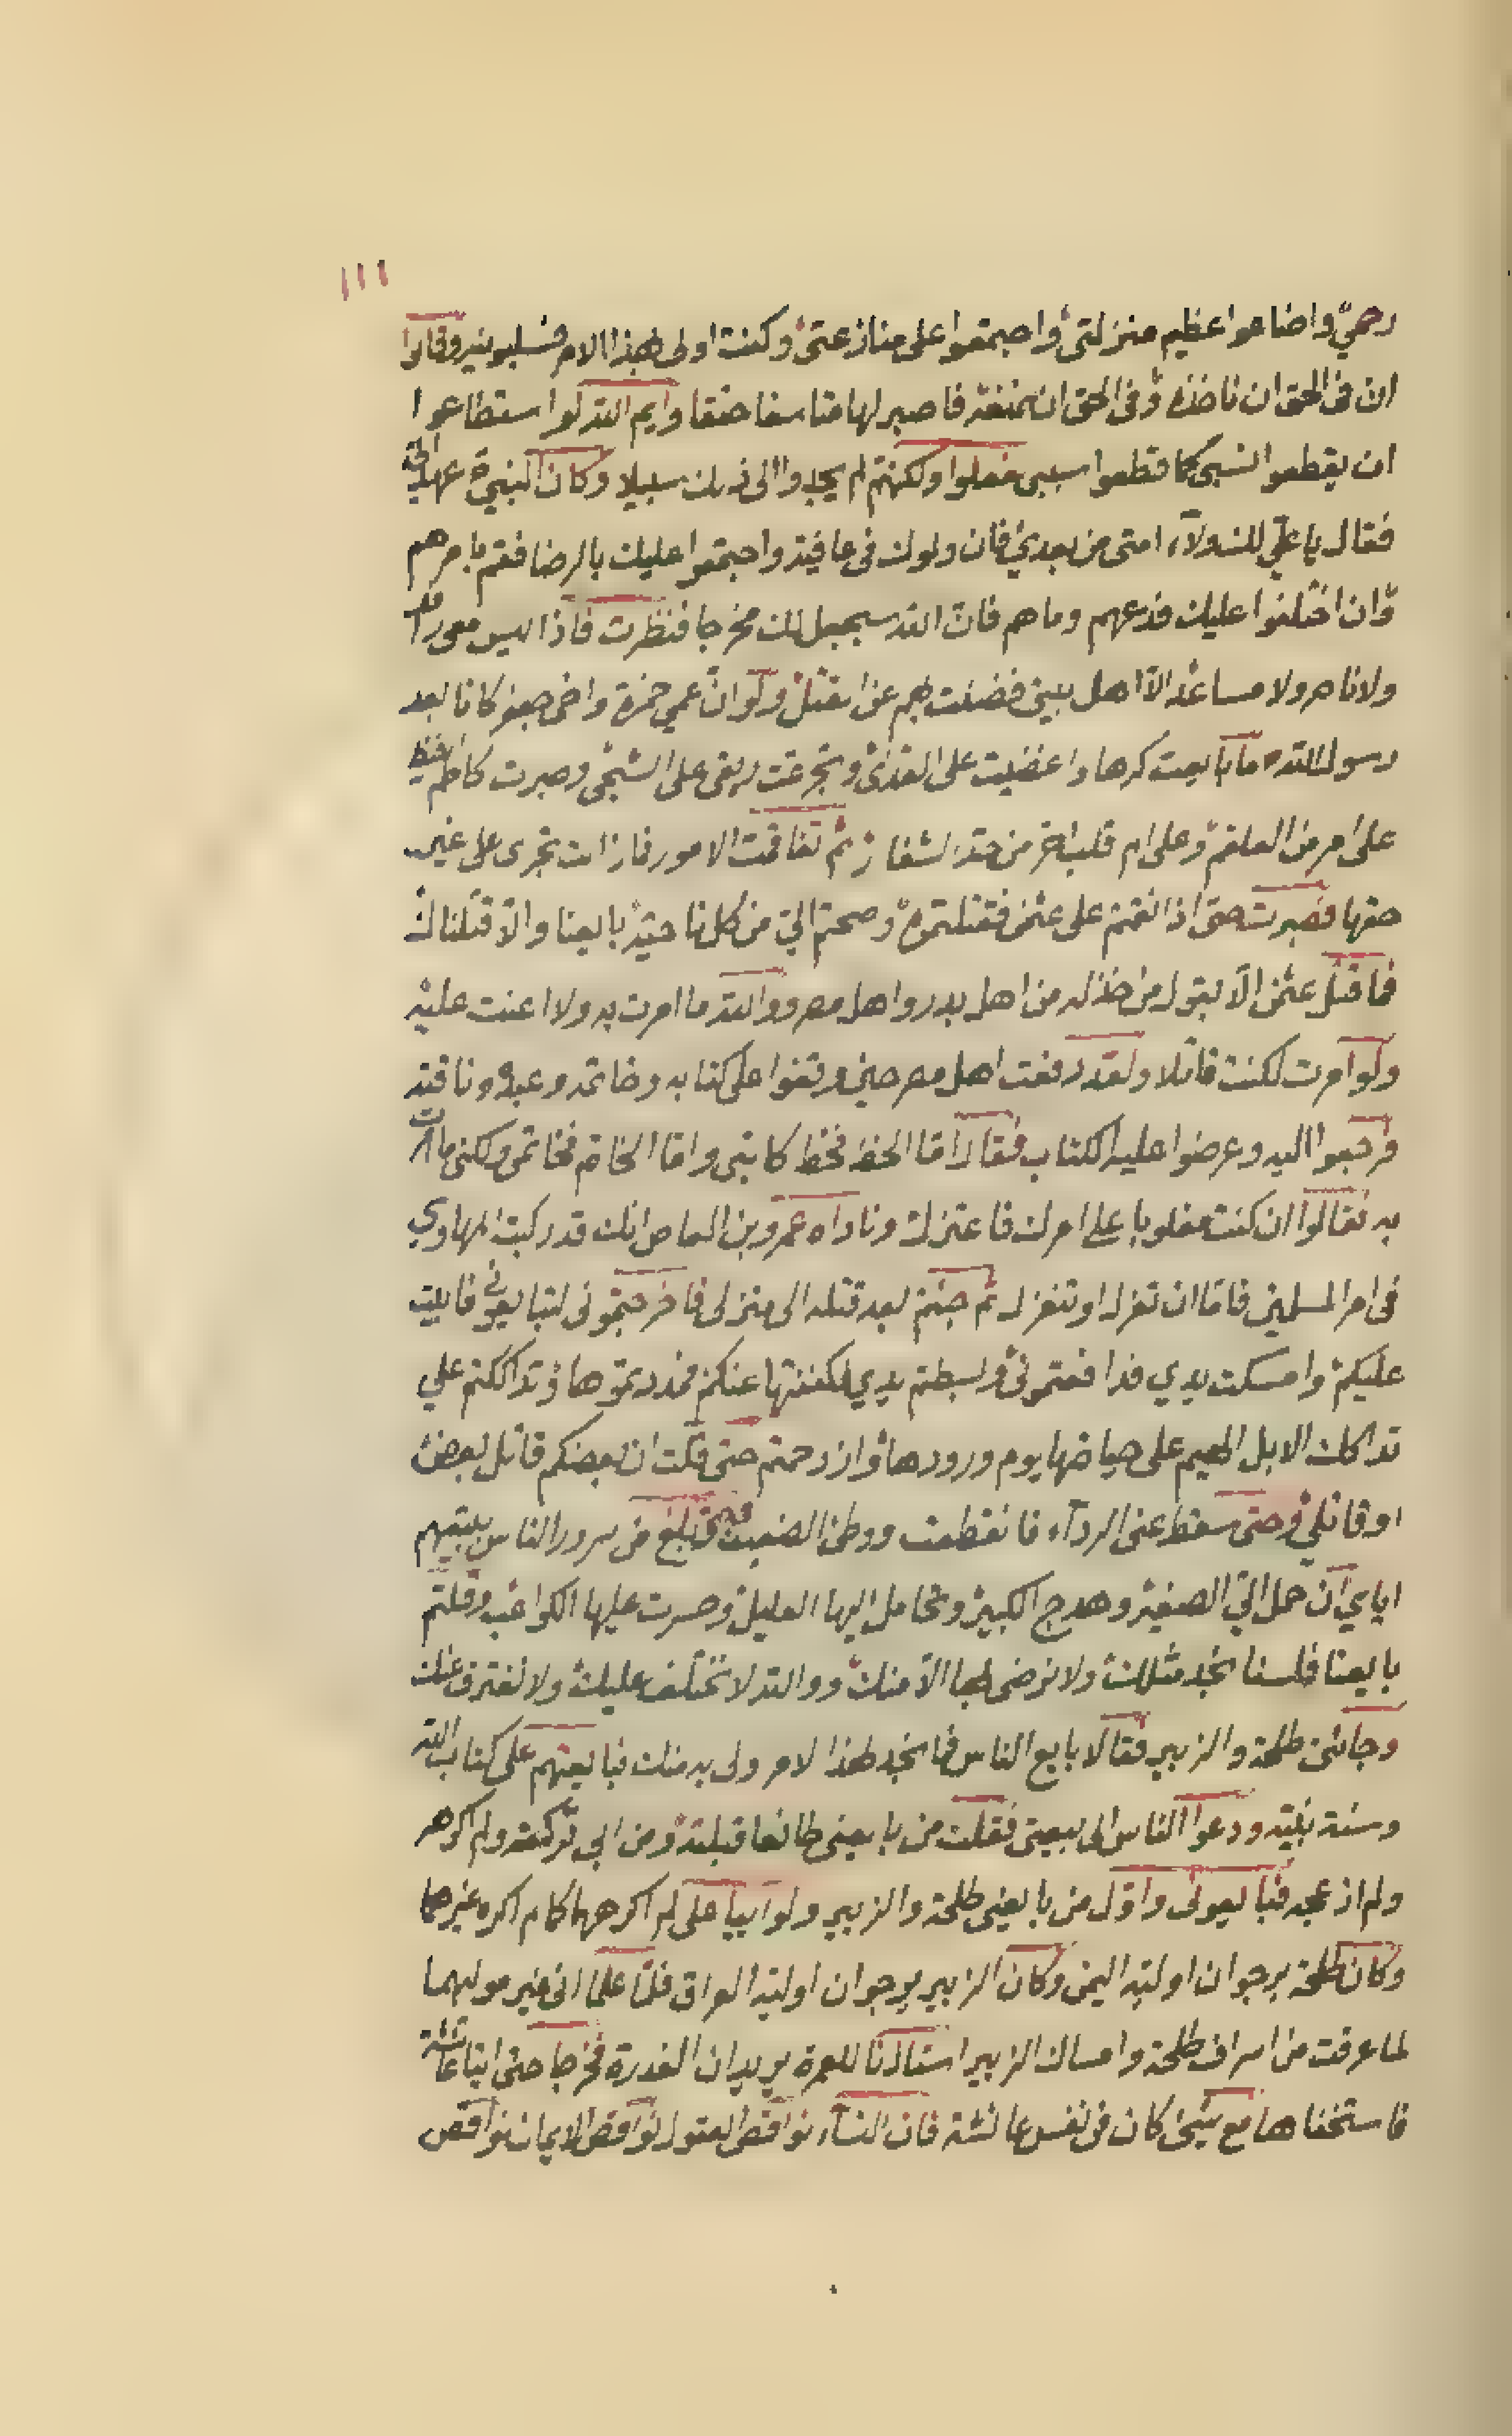 ١١١
رحمي واضاعوا عظيم منزلتي واجتمعوا على منازعتي وكنت اولى بهذا الامر فسلبونيه وقالوا
ان في الحق ان ناخذه وفي الحق ان تمنعه فاصبر لها متاسفا حنقا وايم الله لو استطاعوا
ان يقطعوا النسبي كما قطعوا سببي فعلوا ولكنهم لم يجدوا الى ذلك سبيلا وكان النبي عهد الي
فقال يا علي لك ولاء امتي من بعدي فان ولوك في عافية واجتمعوا عليك بالرضا فقم بامرهم
وان اختلفوا عليك فدعهم وما هم فان الله سيجعل لك مخرجا فنظرت فاذا ليس معي رافد
ولا ناصر ولا مساعد الا اهل بيتي فضننت بهم عن القتل ولو ان عمي حمزة واخي جعفر كانا بعد
رسول الله ما بايعت كرها واغضيت على القذى وتجرعت ريقي على الشجى وصبرت كاظم الغيظ
على امر من العلقم وعلى الم قلب احر من حد الشفار ثم تفاقمت الامور فما زالت تجري على غير
حقها فصبرت حتى اذا نقمتم على عثمن فقتلتموه وصحتم الي من كل ناحية بايعنا والا قتلناك
فما قتل عثمن الا بقول من خذله من اهل بدر واهل مصر ووالله ما امرت به ولا اعنت عليه
ولو امرت لكنت قاتلا ولقد دفعت اهل مصر حين وقفوا على كتابه وخاتمه وعبده وناقته
فرجعوا اليه وعرضوا عليه الكتاب فقال اما الخط فخط كاتبي واما الخاتم فخاتمي ولكني ما امرت
به فقالوا ان كنت مغلوبا على امرك فاعتزل وناداه عمرو بن العاص انك قد ركبت المهاوي
في امر المسلمين فاما ان تعزل او تنعزل ثم جئتم بعد قتله الى منزلي فاخرجتموني لتبايعوني فابيت
عليكم وامسكت يدي فدافعتموني وبسطتم يدي لكففتها عنكم فمددتموها وتداككتم علي
تداكك الابل الهيم على حياضها يوم ورودها وازدحمتم حتى قلت ان بعضكم قاتل بعض
او قاتلي وحتى سقط عني الرداء فانقطعت ووطئ الضعيف وحتى بلغ من سرور الناس ببيعتهم
اياي ان حمل الي الصغير وهدج الكبير وتحامل اليها العليل وحسرت عليها الكواعب وقلتم
بايعنا فلسنا نجد مثلك ولا نرضى لها الا منك ووالله لا نختلف عليك ولا نفترق عنك
وجائني طلحة والزبير فقالا بايع الناس فما نجد لهذا الامر ولى به منك فبايعتهم على كتاب الله
وسنة نبيه ودعوا الناس الى بيعتي فقلت من بايعني طائعا قبلته ومن ابى تركته ولم اكره
ولم ازعجه فبايعوني واول من بايعني طلحة والزبير ولو ابيا علي لم اكرههما كما لم اكره غيرهما
وكان طلحة يرجوا ن اوليه اليمن وكان الزبير يرجوا ن اوليه العراق فلما علما اني غير موليهما
لما عرفت من اسراف طلحة وامساك الزبير استاذنا للعمرة يريدان الغدرة فخرجا حتى اتيا عائشة
فاستخفاها مع شيئ كان في نفس عائشة فان النساء نواقص العقول نواقص الايمان نواقص